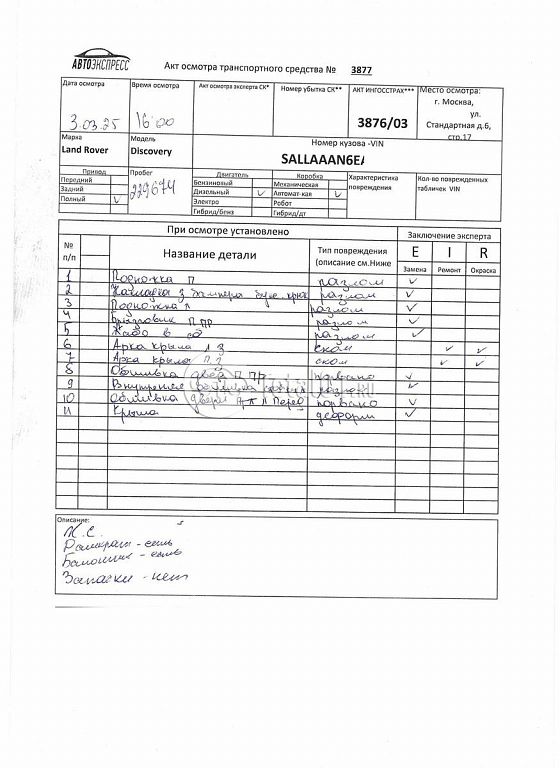 АВТОЭКСПРЕСС
Акт осмотра транспортного средства № 3877
Дата осмотра
3.03.25
Время осмотра
16 00
Акт осмотра эксперта СК*
Номер убытка СК**
АКТ ИНГОССТРАХ***
3876/03
Место осмотра:
г. Москва,
ул.
Стандартная д.6,
стр.17
Марка
Land Rover
Модель
Discovery
Номер кузова -VIN
SALLAAAN6EA
Привод
Передний
Задний
Полный V
Пробег
229674
Двигатель
Бензиновый
Дизельный V
Электро
Гибрид/бенз
Коробка
Механическая
Автомат-кая V
Робот
Гибрид/дт
Характеристика
повреждения
Кол-во поврежденных
табличек VIN
При осмотре установлено
Заключение эксперта
№
п/п
Название детали
Тип повреждения
(описание см.Ниже
E I R
Замена Ремонт Окраска
1 Подножка П разлом ✓
2 Накладка з бампера букс. крюк разлом ✓
3 Подножка л разлом ✓
4 Брызговик П ПР разлом ✓
5 Жабо в сб разлом ✓
6 Арка крыла л з скол ✓ ✓
7 Арка крыла П З скол ✓ ✓
8 Обшивка двер П ПР порвано ✓
9 Внутренняя обшивка ✓
10 Обшивка двери Л перед порвано ✓
11 Крыша деформ ✓
Описание:
К.С.
Домкрат - есть
Балонник - есть
Запаски - нет